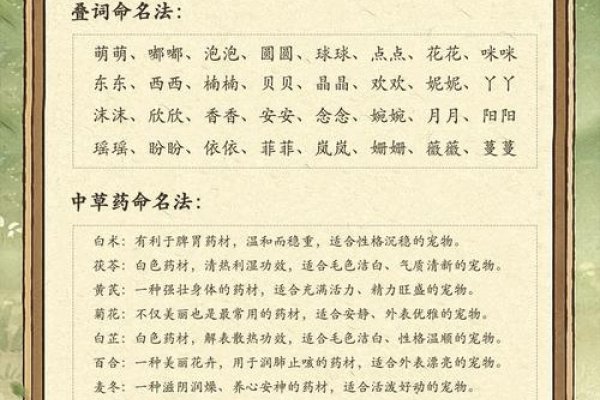 叠词命名法：
萌萌、嘟嘟、泡泡、圆圆、球球、点点、花花、咪咪
东东、西西、楠楠、贝贝、晶晶、欢欢、妮妮、丫丫
沫沫、欣欣、香香、安安、念念、婉婉、月月、阳阳
瑶瑶、盼盼、依依、菲菲、岚岚、姗姗、薇薇、蔓蔓
中草药命名法：
白术：有利于脾胃药材，温和而稳重，适合性格沉稳的宠物。
茯苓：白色药材，清热利湿功效，适合毛色洁白、气质清新的宠物。
黄芪：一种强壮身体的药材，适合充满活力、精力旺盛的宠物。
菊花：不仅美丽也是最常用的药材，适合安静、外表优雅的宠物。
白芷：白色药材，解表散热功效，适合毛色洁白、性格温顺的宠物。
百合：一种美丽花卉，用于润肺止咳的药材，适合外表漂亮的宠物。
麦冬：一种滋阴润燥、养心安神的药材，适合活泼好动的宠物。